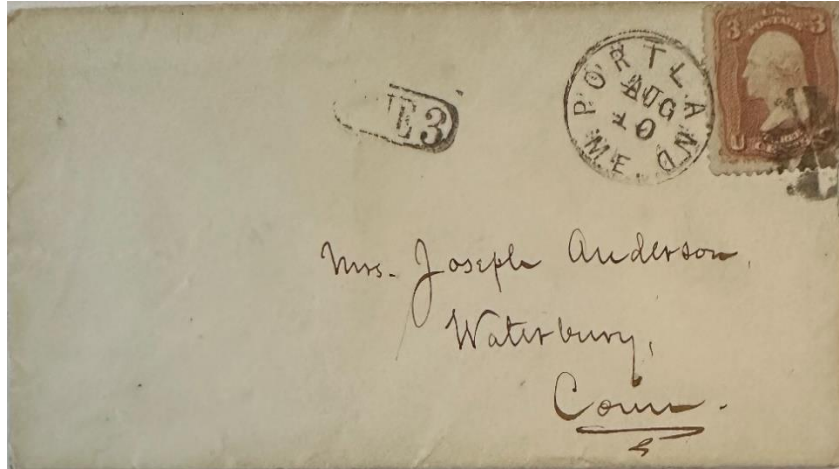 PORTLAND
ME
AUG
10
3 U.S. POSTAGE 3
U S
E 3
Mrs. Joseph Anderson,
Waterbury,
Conn.